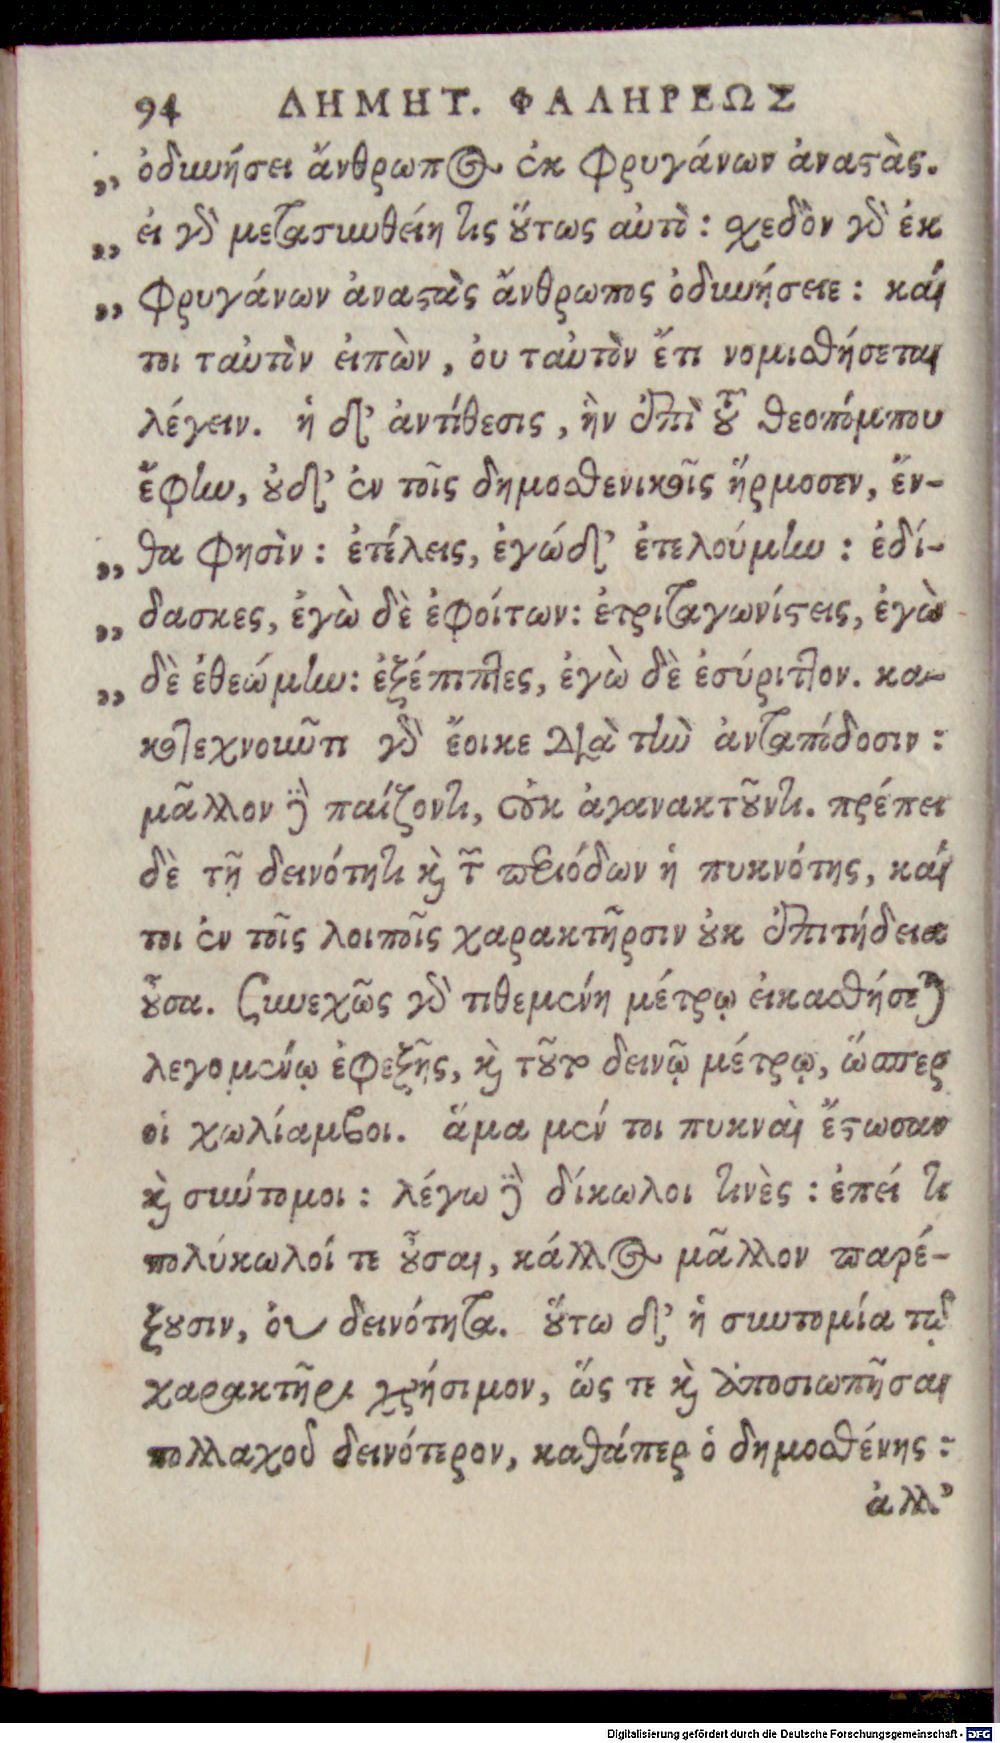 94 ΔΗΜΗΤ. ΦΑΛΗΡΕΩΣ
„ ὀδυνήσει ἄνθρωπος ἐκ φρυγάνων ἀναστάς.
„ εἰ γὸ μεταστυωθείη τὶς οὕτως αὐτὸ: σχεδὸν γὸ ἐκ
„ φρυγάνων ἀναστὰς ἄνθρωπος ὀδυνήσειε: καί
τοι ταὐτὸν εἰπὼν, ὀυ ταὐτὸν ἔτι νομισθήσεται
λέγειν. ἡ δ' ἀντίθεσις, ἣν ἐπὶ τοῦ θεοπόμπου
ἔφην, οὐδ' ἐν τοῖς δημοσθενικοῖς ἥρμοσεν, ἔν-
„ θα φησὶν: ἐτέλεις, ἐγώδ' ἐτελούμην: ἐδί-
„ δασκες, ἐγὼ δὲ ἐφοίτων: ἐτριταγωνίστεις, ἐγὼ
„ δὲ ἐθεώμην: ἐξέπιπτες, ἐγὼ δὲ ἐσύριττον. κα-
κοτεχνοῦντι γὸ ἔοικε διὰ τὴν ἀνταπόδοσιν:
μᾶλλον δὲ παίζοντι, οὐκ ἀγανακτοῦντι. πρέπει
δὲ τῇ δεινότητι καὶ τῶν περιόδων ἡ πυκνότης, καί
τοι ἐν τοῖς λοιποῖς χαρακτῆρσιν οὐκ ἐπιτήδεια
οὖσα. συνεχῶς γὸ τιθεμένη μέτρῳ εἰκασθήσεται
λεγομένῳ ἐφεξῆς, καὶ τοῦτο δεινῷ μέτρῳ, ὥσπερ
οἱ χωλίαμβοι. ἅμα μέν τοι πυκναὶ ἔστωσαν
καὶ σύντομοι: λέγω δὲ δίκωλοι τινὲς: ἐπεί τι
πολύκωλοί τε οὖσαι, κάλλος μᾶλλον παρέ-
ξουσιν, ὀυ δεινότητα. οὕτω δ' ἡ συντομία τῷ
χαρακτῆρι χρήσιμον, ὥς τε καὶ ἀποσιωπῆσαι
πολλαχοῦ δεινότερον, καθάπερ ὁ δημοσθένης:
ἀλλ'
Digitalisierung gefördert durch die Deutsche Forschungsgemeinschaft - DFG